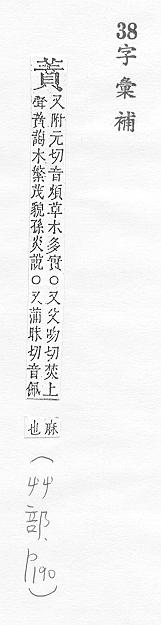 38字彙補
蕡
又附元切音煩草木多實○又父吻切焚上
聲蕡藹木繁茂貌孫炎說○又蒲昧切音佩
麻
也
(艸部、P190)